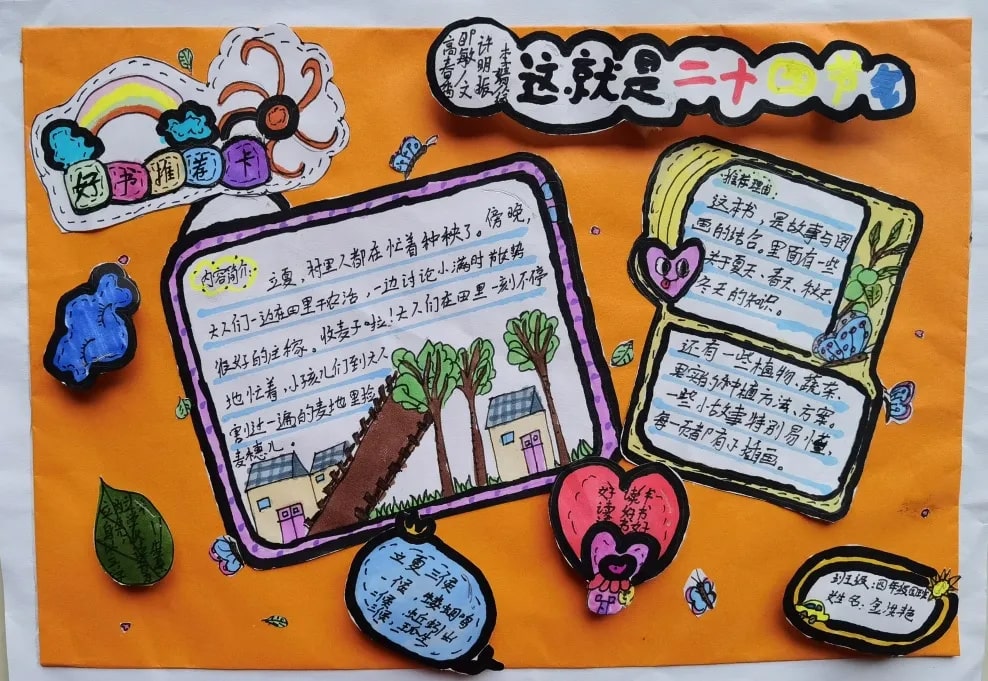 好书推荐卡
高春香
邵敏/文
许明振
这.就是二十四节气
内容简介:
立夏,村里人都在忙着种秧了。傍晚,
大人们一边在田里干农活,一边讨论小满时散势
很好的庄稼。收麦子啦!大人们在田里一刻不停
地忙着,小孩儿们到大人
割过一遍的麦地里捡
麦穗儿。
推荐理由:
这本书,是故事与图
画的结合。里面有一些
关于夏天、春天、秋天
冬天的知识。
还有一些植物、蔬菜、
果实的种植方法、方案。
一些小故事特别易懂,
每一页都有小插画。
好读书
读好书
书好
立夏三候
一候 蝼蝈鸣
二候 蚯蚓出
三候,王瓜生
班级:四年级
姓名:金洪艳